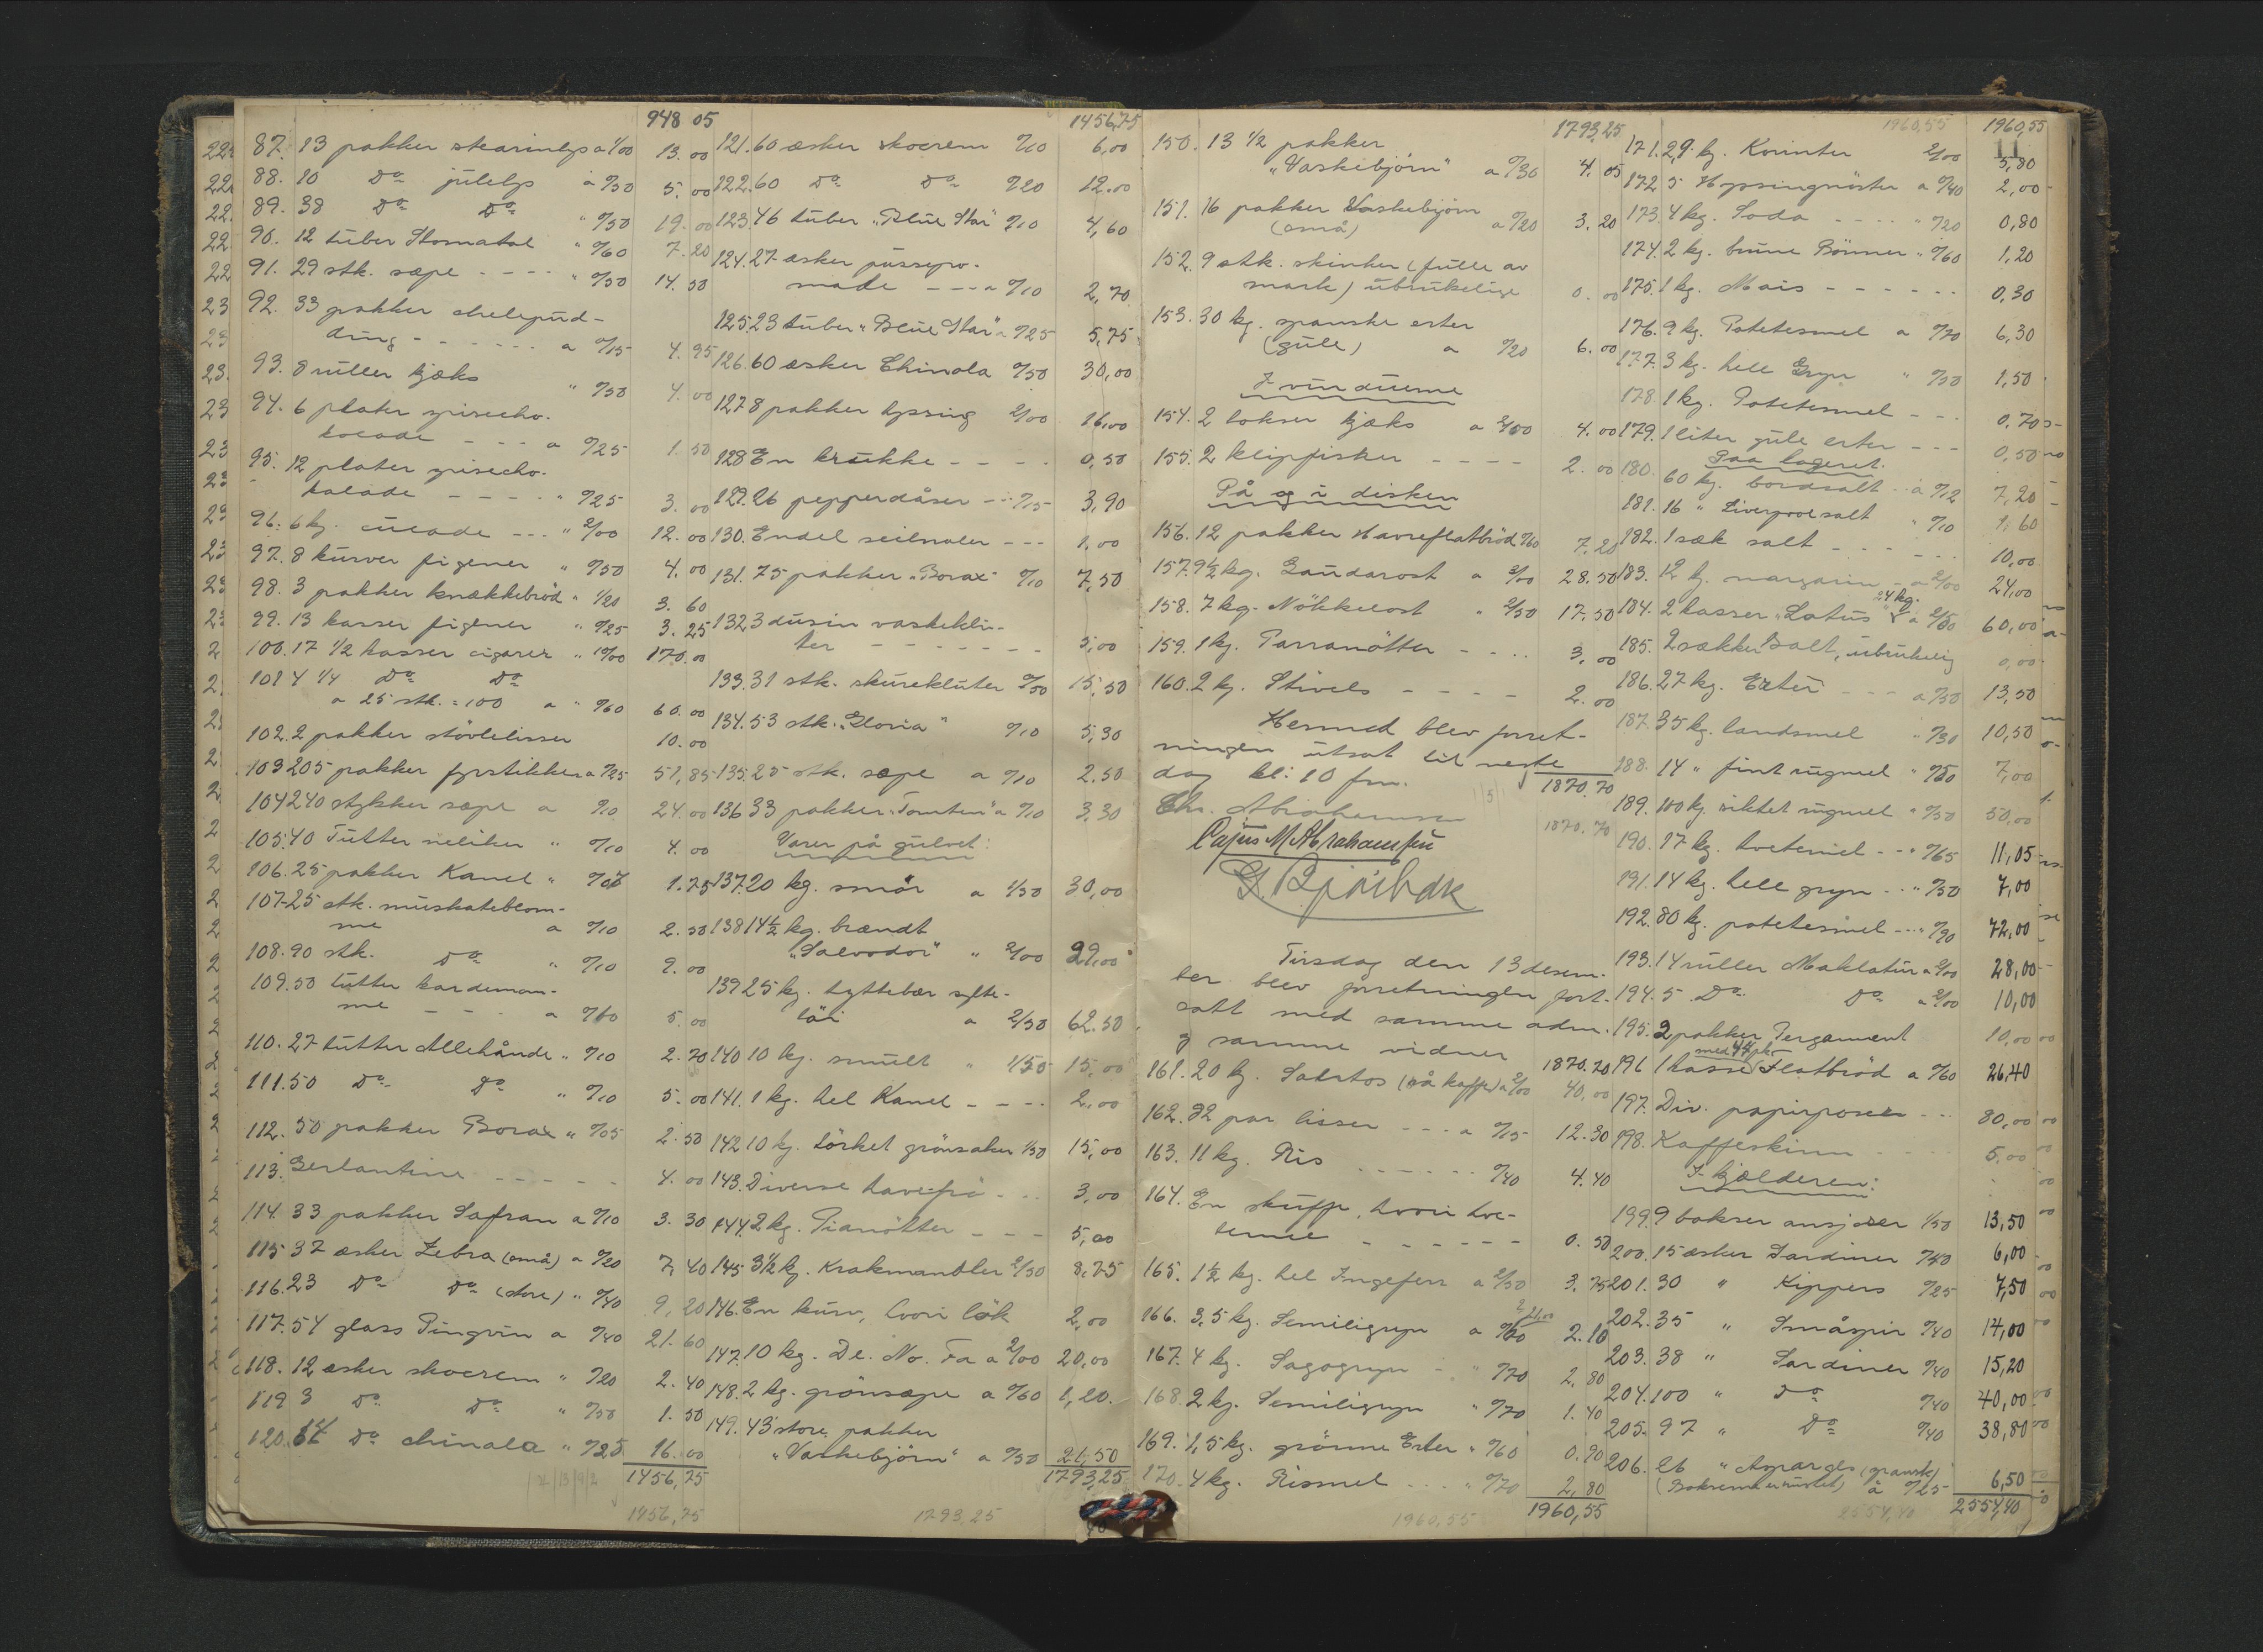 948 05
87. 13 pakker stearinlys a 1/00 13.00
88. 10 Do julelys a 0/50 5.00
89. 38 Do Do " 0/50 19.00
90. 12 tuber Stomatol " 0/60 7.20
91. 29 stk. sæpe - - - - " 0/50 14.50
92. 33 pakker
ding - - - - - - a 0/15 4.95
93. 8 ruller kjæks " 0/50 4.00
94. 6 plater spisecho-
kolade - - - a 0/25 1.50
95. 12 plater spisecho-
kolade - - - - " 0/25 3.00
96. 6 kg. - - - " 2/00 12.00
97. 8 kurver figener " 0/50 4.00
98. 3 pakker knækkebröd " 1/20 3.60
99. 13 kasser figener " 0/25 3.25
100. 17 1/2 kasser cigarer " 10/00 170.00
101 4 1/4 Do Do
a 25 stk. = 100 a " 0/60 60.00
102. 2 pakker stövlelisser 10.00
103 205 pakker fyrstikker a 0/25 51,85
104 240 stykker sæpe a 0/10 24.00
105. 40 Tutter neliker " 0/10 4.00
106. 25 pakker Kanel " 0/07 1.75
107. 25 stk. muskateblom-
me a 0/10 2.50
108. 90 stk. Do " 0/10 9.00
109. 50 tutter kardemom-
me - - - a 0/10 5.00
110. 27 tutter Allehånde " 0/10 2.70
111. 50 Do Do " 0/10 5.00
112. 50 pakker Borax " 0/05 2.50
113. - - - - - 4.00
114. 33 pakker Safran a 0/10 3.30
115. 37 æsker Zebra (små) a 0/20 7,40
116. 23 Do Do (store) " 0/40 9,20
117. 54 glass Pingvin a 0/40 21.60
118. 12 æsker skocrem " 0/20 2.40
119 3 Do Do " 0/50 1.50
120. 64 Do chinola " 0/25 16.00
1456,75
1456,75
1456,75
121. 60 æsker skocrem 0/10 6,00
122. 60 Do Do 0/20 12.00
123. 46 tuber "Blue Star" 0/10 4,60
124. 27 æsker pussepo-
made - - - a 0/10 2,70
125. 23 tuber "Blue Star" a 0/25 5,75
126. 60 æsker Chinola 0/50 30,00
127. 8 pakker lyssing 2/00 16,00
128 En krukke - - - - 0,50
129. 26 pepperdåser - - 0/15 3,90
130. Endel seilnaler - - - 1,00
131. 75 pakker "Borax" 0/10 7,50
132 3 dusin vaskeklu-
ter - - - - - - - 5,00
133. 31 stk. skurekluter 0/50 15,50
134. 53 stk. "Gloria" 0/10 5,30
135. 25 stk. sæpe a 0/10 2.50
136 33 pakker "Tomten" a 0/10 3.30
Varer på gulvet:
137. 20 kg. smör a 1/50 30,00
138 14 1/2 kg. brændt
"Salvador" " 2/00 29,00
139 25 kg. tyttebær sylte-
töi a 2/50 62.50
140 10 kg. smult " 1/50 15,00
141. 1 kg. hel Kanel - - - - 2,00
142 10 kg. törket grönsaker 1/50 15,00
143. Diverse havefrö - - - 3,00
144. 2 kg. Pianötter - - - 5,00
145. 3 1/2 kg. Krakmandler 2/50 8,75
146. En kurv, hvori lök 2,00
147. 10 kg. De. No. Fa a 2/00 20,00
148. 2 kg. grönsæpe a 0/60 1,20.
149. 43 store pakker
"Vaskebjörn" a 0/50 21,50
1793,25
1793,25
1793,25
150. 13 1/2 pakker
"Vaskebjörn" a 0/30 4.05
151. 16 pakker Vaskebjörn
(små) a 0/20 3.20
152. 9 stk. skinker (fulle av
mark) ubrukelige 0.00
153. 30 kg. spanske erter
(gule) a 0/20 6.00
I vinduerne
154. 2 bokser kjæks a 2/00 4.00
155. 2 klipfisker - - - - 2.00
På og i disken
156. 12 pakker Havreflatbröd 0/60 7.20
157. 9 1/2 kg. Gaudaost a 3/00 28.50
158. 7 kg. Nökkelost " 2/50 17.50
159. 1 kg. Parranötter - - - - 3,00
160. 2 kg. Stivels - - - - 2.00
Hermed blev forret-
ningen utsat til neste
dag kl: 10 fm. 1870.70
Chr. Abrahamsen 1870.70
Cajus M Abrahamsen
Tirsdag den 13 desem-
ber blev forretningen fort-
satt med samme adm.
og samme vidner 1870.70
161. 20 kg. Salvatos (rå kaffe) a 2/00 40,00
162. 82 par lisser - - - a 0/15 12.30
163. 11 kg. Ris - - - - - - 0/40 4.40
164. En skuffe, hvori hve-
temel - - - - - - 0.50
165. 1 1/2 kg. hel Ingefær a 2/50 3.75
166. 3,5 kg. Semiligryn a 0/60 2.10
167. 4 kg. Sagogryn - " 0/70 2,80
168. 2 kg. Semiligryn " 0/70 1.40
169. 1,5 kg. grönne Erter " 0/60 0.90
170. 4 kg. Rismel . . . " 0/70 2,80
1960,55
1960,55
1960,55 1960,55
11
171. 2,9 kg. Korinter 2/00 5,80
172 5 a 0/40 2,00
173. 4 kg. Soda - - - - " 0/20 0,80
174. 2 kg. brune Bönner " 0/60 1,20
175. 1 kg. Mais - - - - - - 0,30
176. 9 kg. Potetesmel a 0/70 6,30
177. 3 kg. hele Gryn " 0/50 1,50
178. 1 kg. Potetesmel - - - 0,70
179. 1 liter gule erter - - - 0,50
Paa lageret.
180. 60 kg. bordsalt - - a 0/12 7,20
181. 16 " Liverpoolsalt " 0/10 1,60
182. 1 sæk salt - - - - - - 10,00
183. 12 kg. margarin - a 2/00 24,00
24 kg.
184. 2 kasser "Lotus" a 2/50 60,00
185. 2 sækker Salt, ubrukelig 0,00
186. 27 kg. Erter - - - a 0/50 13,50
187. 35 kg. landsmel " 0/30 10,50
188. 14 " fint rugmel " 0/50 7,00
189. 100 kg. siktet rugmel " 0/50 50,00
190. 17 kg. hvetemel - - " 0/65 11,05
191. 14 kg. hele gryn - - " 0/50 7,00
192. 80 kg. potetesmel - - " 0/90 72,00
193. 14 ruller Maklatur a 2/00 28,00
194. 5 Do Do a 2/00 10,00
195. 2 pakker Pergament 10,00
med 44 pk.
196 1 kasse Flatbröd a 0/60 26,40
197. Div. papirposer - - - 80,00
198. Kaffeskinn - - - - 5.00
I kjælderen:
199. 9 bokser ansjoser 1/50 13,50
200. 15 æsker Sardiner 0/40 6,00
201. 30 " Kippers 0/25 7,50
202. 35 " Småspir 0/40 14,00
203. 38 " Sardiner 0/40 15,20
204. 100 " Do 0/40 40,00
205. 97 " Do 0/40 38,80
206. 26 " Asparges (spansk)
(Boksene er rustet) à 0/25 6,50
2554,40
2554,40